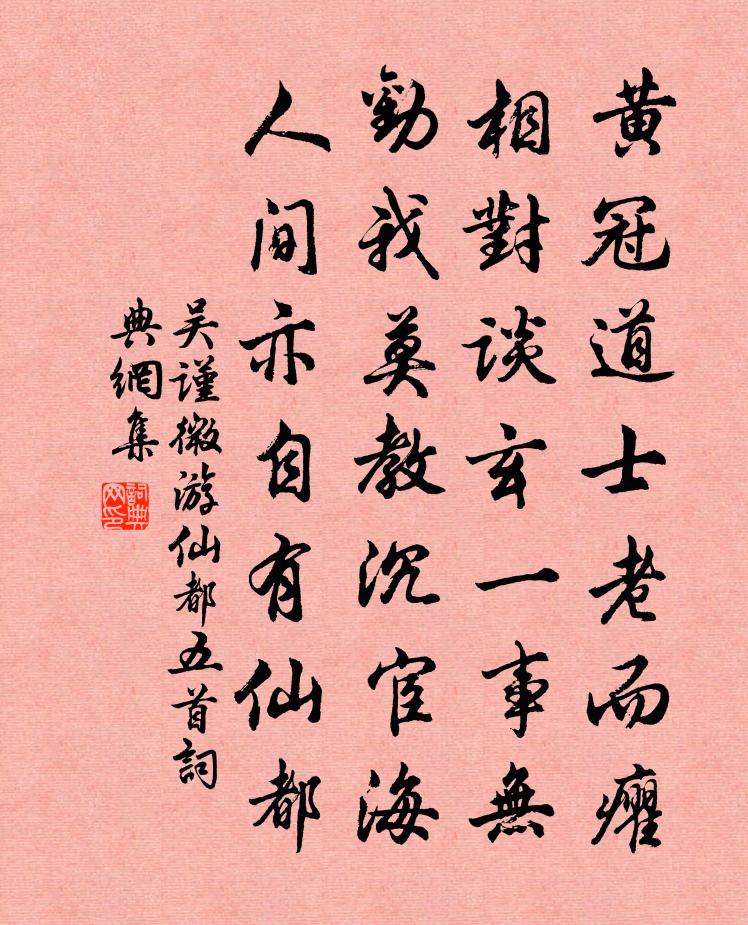 黄冠道士老而癯
相對談玄一事無
勸我莫教沉宦海
人間亦自有仙都
吴謹微游仙都五首詞
典網集
詞典
网印